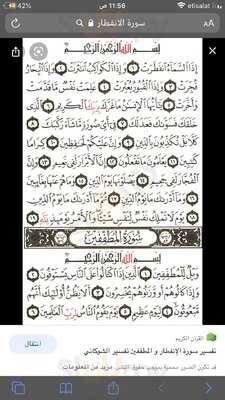 42% 11:56 etisalat
سورة الانفطار
AA
بسم الله الرحمن الرحيم
إِذَا السَّمَاءُ انفَطَرَتْ ١ وَإِذَا الْكَوَاكِبُ انتَثَرَتْ ٢ وَإِذَا الْبِحَارُ
فُجِّرَتْ ٣ وَإِذَا الْقُبُورُ بُعْثِرَتْ ٤ عَلِمَتْ نَفْسٌ مَّا قَدَّمَتْ
وَأَخَّرَتْ ٥ يَا أَيُّهَا الْإِنسَانُ مَا غَرَّكَ بِرَبِّكَ الْكَرِيمِ ٦ الَّذِي
خَلَقَكَ فَسَوَّاكَ فَعَدَلَكَ ٧ فِي أَيِّ صُورَةٍ مَّا شَاءَ رَكَّبَكَ ٨
كَلَّا بَلْ تُكَذِّبُونَ بِالدِّينِ ٩ وَإِنَّ عَلَيْكُمْ لَحَافِظِينَ ١٠ كِرَامًا
كَاتِبِينَ ١١ يَعْلَمُونَ مَا تَفْعَلُونَ ١٢ إِنَّ الْأَبْرَارَ لَفِي نَعِيمٍ ١٣ وَإِنَّ
الْفُجَّارَ لَفِي جَحِيمٍ ١٤ يَصْلَوْنَهَا يَوْمَ الدِّينِ ١٥ وَمَا هُمْ عَنْهَا بِغَائِبِينَ
١٦ وَمَا أَدْرَاكَ مَا يَوْمُ الدِّينِ ١٧ ثُمَّ مَا أَدْرَاكَ مَا يَوْمُ الدِّينِ
١٨ يَوْمَ لَا تَمْلِكُ نَفْسٌ لِّنَفْسٍ شَيْئًا وَالْأَمْرُ يَوْمَئِذٍ لِّلَّهِ ١٩
سورة المطففين
بسم الله الرحمن الرحيم
وَيْلٌ لِّلْمُطَفِّفِينَ ١ الَّذِينَ إِذَا اكْتَالُوا عَلَى النَّاسِ يَسْتَوْفُونَ ٢
وَإِذَا كَالُوهُمْ أَو وَّزَنُوهُمْ يُخْسِرُونَ ٣ أَلَا يَظُنُّ أُولَٰئِكَ أَنَّهُم
مَّبْعُوثُونَ ٤ لِيَوْمٍ عَظِيمٍ ٥ يَوْمَ يَقُومُ النَّاسُ لِرَبِّ الْعَالَمِينَ ٦
القرآن الكريم
تفسير سورة الإنفطار و المطففين تفسير الشوكاني
انتقال
قد تكون الصور محمية بموجب حقوق النشر. مزيد من المعلومات